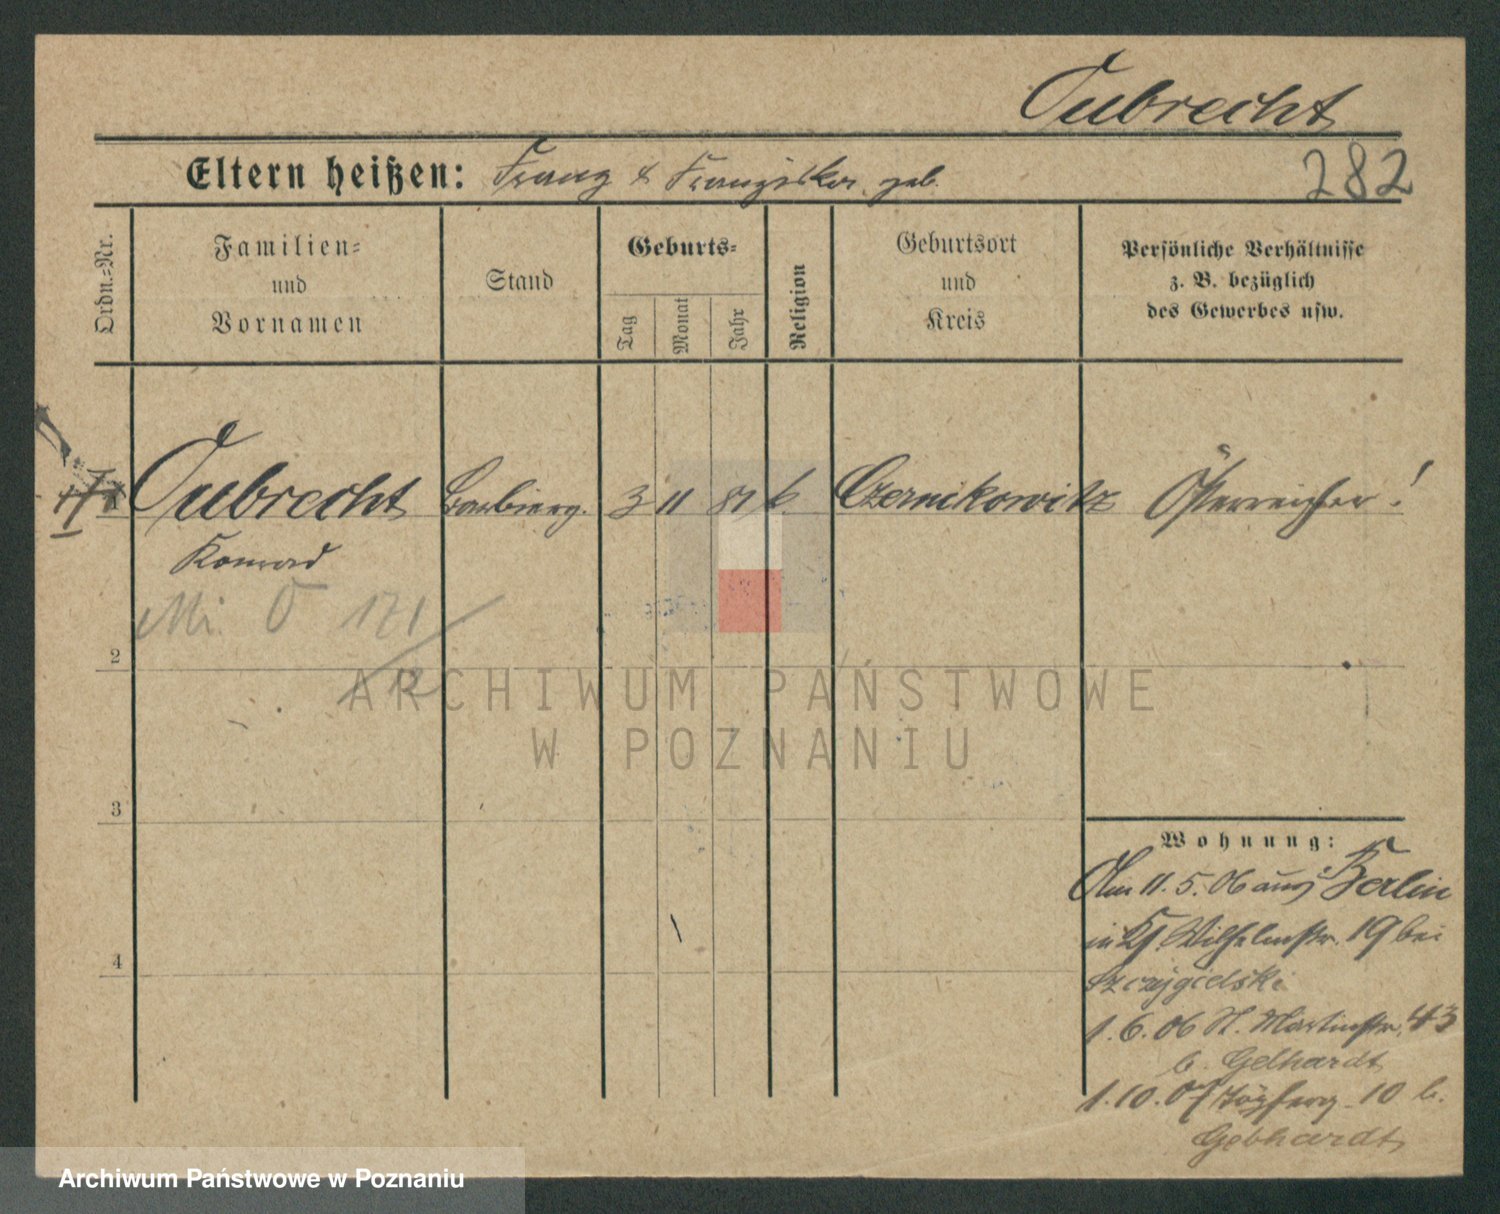 Oubrecht
Eltern heißen: Franz & Franziska geb.
282
Ordn.=Nr.
Familien=
und
Vornamen
Stand
Geburts=
Tag
Monat
Jahr
Religion
Geburtsort
und
Kreis
Persönliche Verhältnisse
z. B. bezüglich
des Gewerbes usw.
1 Oubrecht Barbierg. 3 11 87 k. Czernikowitz Österreicher!
Konrad
Mi. O 171
2
3
4
Wohnung:
Am 11.5.06 aus Berlin
in Wilhelmstr. 19 bei
Szczygielski
1.6.06 St. Martinstr. 43
b. Gebhardt
1.10.07 10 b.
Gebhardt
ARCHIWUM PAŃSTWOWE
W POZNANIU
Archiwum Państwowe w Poznaniu